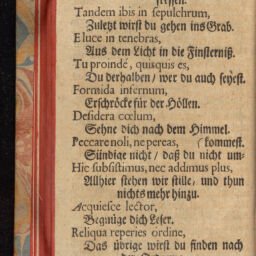 fressen.
Tandem ibis in sepulchrum,
Zuletzt wirst du gehen ins Grab.
E luce in tenebras,
Aus dem Licht in die Finsterniß.
Tu proinde, quisquis es,
Du derhalben / wer du auch seyest.
Formida infernum,
Erschröcke für der Höllen.
Desidera cœlum,
Sehne dich nach dem Himmel.
Peccare noli, ne pereas, (kommest.
Sündige nicht / daß du nicht um-
Hic subsistimus, nec addimus plus,
Allhier stehen wir stille, und thun
nichts mehr hinzu.
Acquiesce lector,
Begnüge dich Leser.
Reliqua reperies ordine,
Das übrige wirst du finden nach